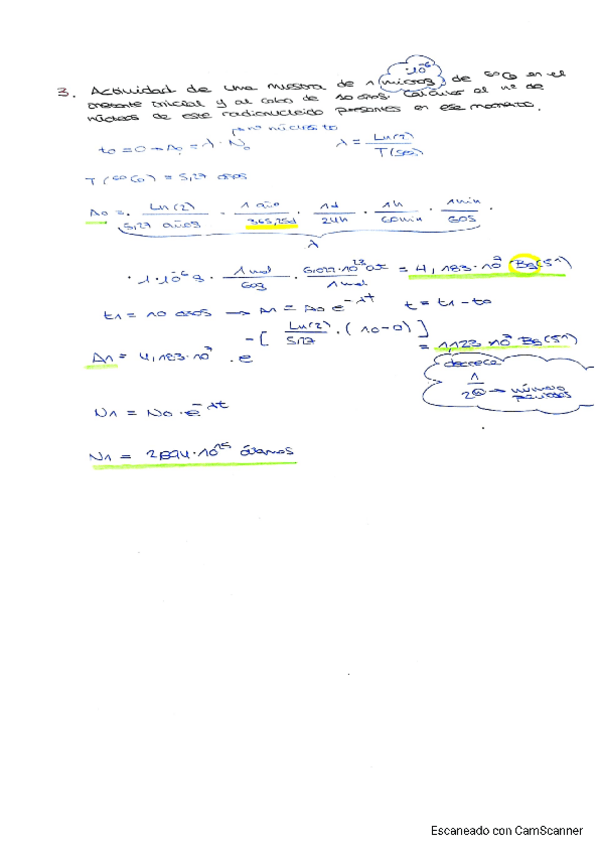 ·10⁻⁶
3. Actividad de una muestra de 1 (micros) de ⁶⁰Co en el
instante inicial y al cabo de 10 años. Calcular el nº de
núcleos de este radionucleido presentes en ese momento.
para núcleos to
to = 0 → A₀ = λ · N₀ λ = Ln(2) / T(seg)
T (⁶⁰Co) = 5,27 años
A₀ = Ln(2) / 5,27 años · 1 año / 365,25d · 1d / 24h · 1h / 60min · 1min / 60s ·
λ
· 1·10⁻⁶ g · 1mol / 60g · 6,022·10²³ at / 1mol = 4,183·10⁷ Bq (s⁻¹)
t₁ = 10 años → A₁ = A₀ e^-λt t = t₁ - t₀
A₁ = 4,183·10⁷ · e^-[Ln(2) / 5,27 · (10-0)] = 1,123·10⁷ Bq (s⁻¹)
decrece
1 / 2ⓝ → número
N₁ = N₀ · e^-λt
N₁ = 2,694·10¹⁵ átomos
Escaneado con CamScanner